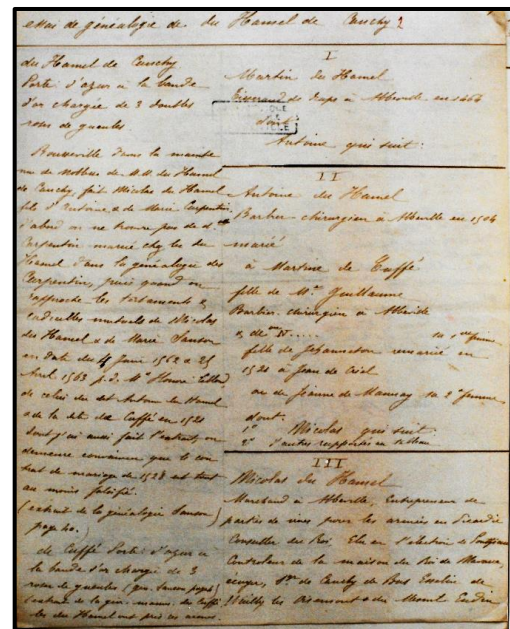 essai de généalogie de du Hamel de Canchy 2
du Hamel de Canchy
Porte d'azur à la bande
d'or chargée de 3 doubles
roses de gueules
Rousseville dans la mainte
nue de Noblesse de M.M. du Hamel
de Canchy, fait Nicolas du Hamel
fils d'Antoine & de Marie Carpentin
d'abord on ne trouve pas de
Carpentin marié chez les du
Hamel dans la généalogie des
Carpentin, puis quand on
rapproche les testaments &
codicilles mutuels de Nicolas
du Hamel & de Marie Sanson
en date des 4 Juin 1562 & 25
Avril 1563 p.d. Me
de celui du dit Antoine du Hamel
& de la dite de Caffé en 1521
dont j'ai aussi fait l'extrait, on
demeure convaincu que le con
trat de mariage de 1528 est tout
au moins falsifié.
(extrait de la généalogie Sanson
page 40.)
de Caffé Porte : d'azur à
la bande d'or chargée de 3
roses de gueules (gén. Sanson page
(extrait de la gén. manus. de Caffé
les du Hamel ont pris ces armes.
I
Martin du Hamel
Tisserand de draps à Abbeville en 1466
dont
Antoine qui suit.
II
Antoine du Hamel
Barbier-chirurgien à Abbeville en 1504
marié
à Martine de Caffé
fille de Me Guillaume
Barbier chirurgien à Abbeville
& de N..... sa 1ere femme
fille de Jehanneton remarié en
1521 à Jean de Creil
ou de Jeanne de Mannay sa 2e femme
dont.
1° Nicolas qui suit.
2° d'autres rapportés en tableau
III
Nicolas du Hamel
Marchand à Abbeville, Entrepreneur de
parties de vivres pour les armées en Picardie
Conseiller du Roi Elu en l'élection de Ponthieu
Controleur de la maison du Roi de Navarre,
écuyer, Sr de Canchy de Bous